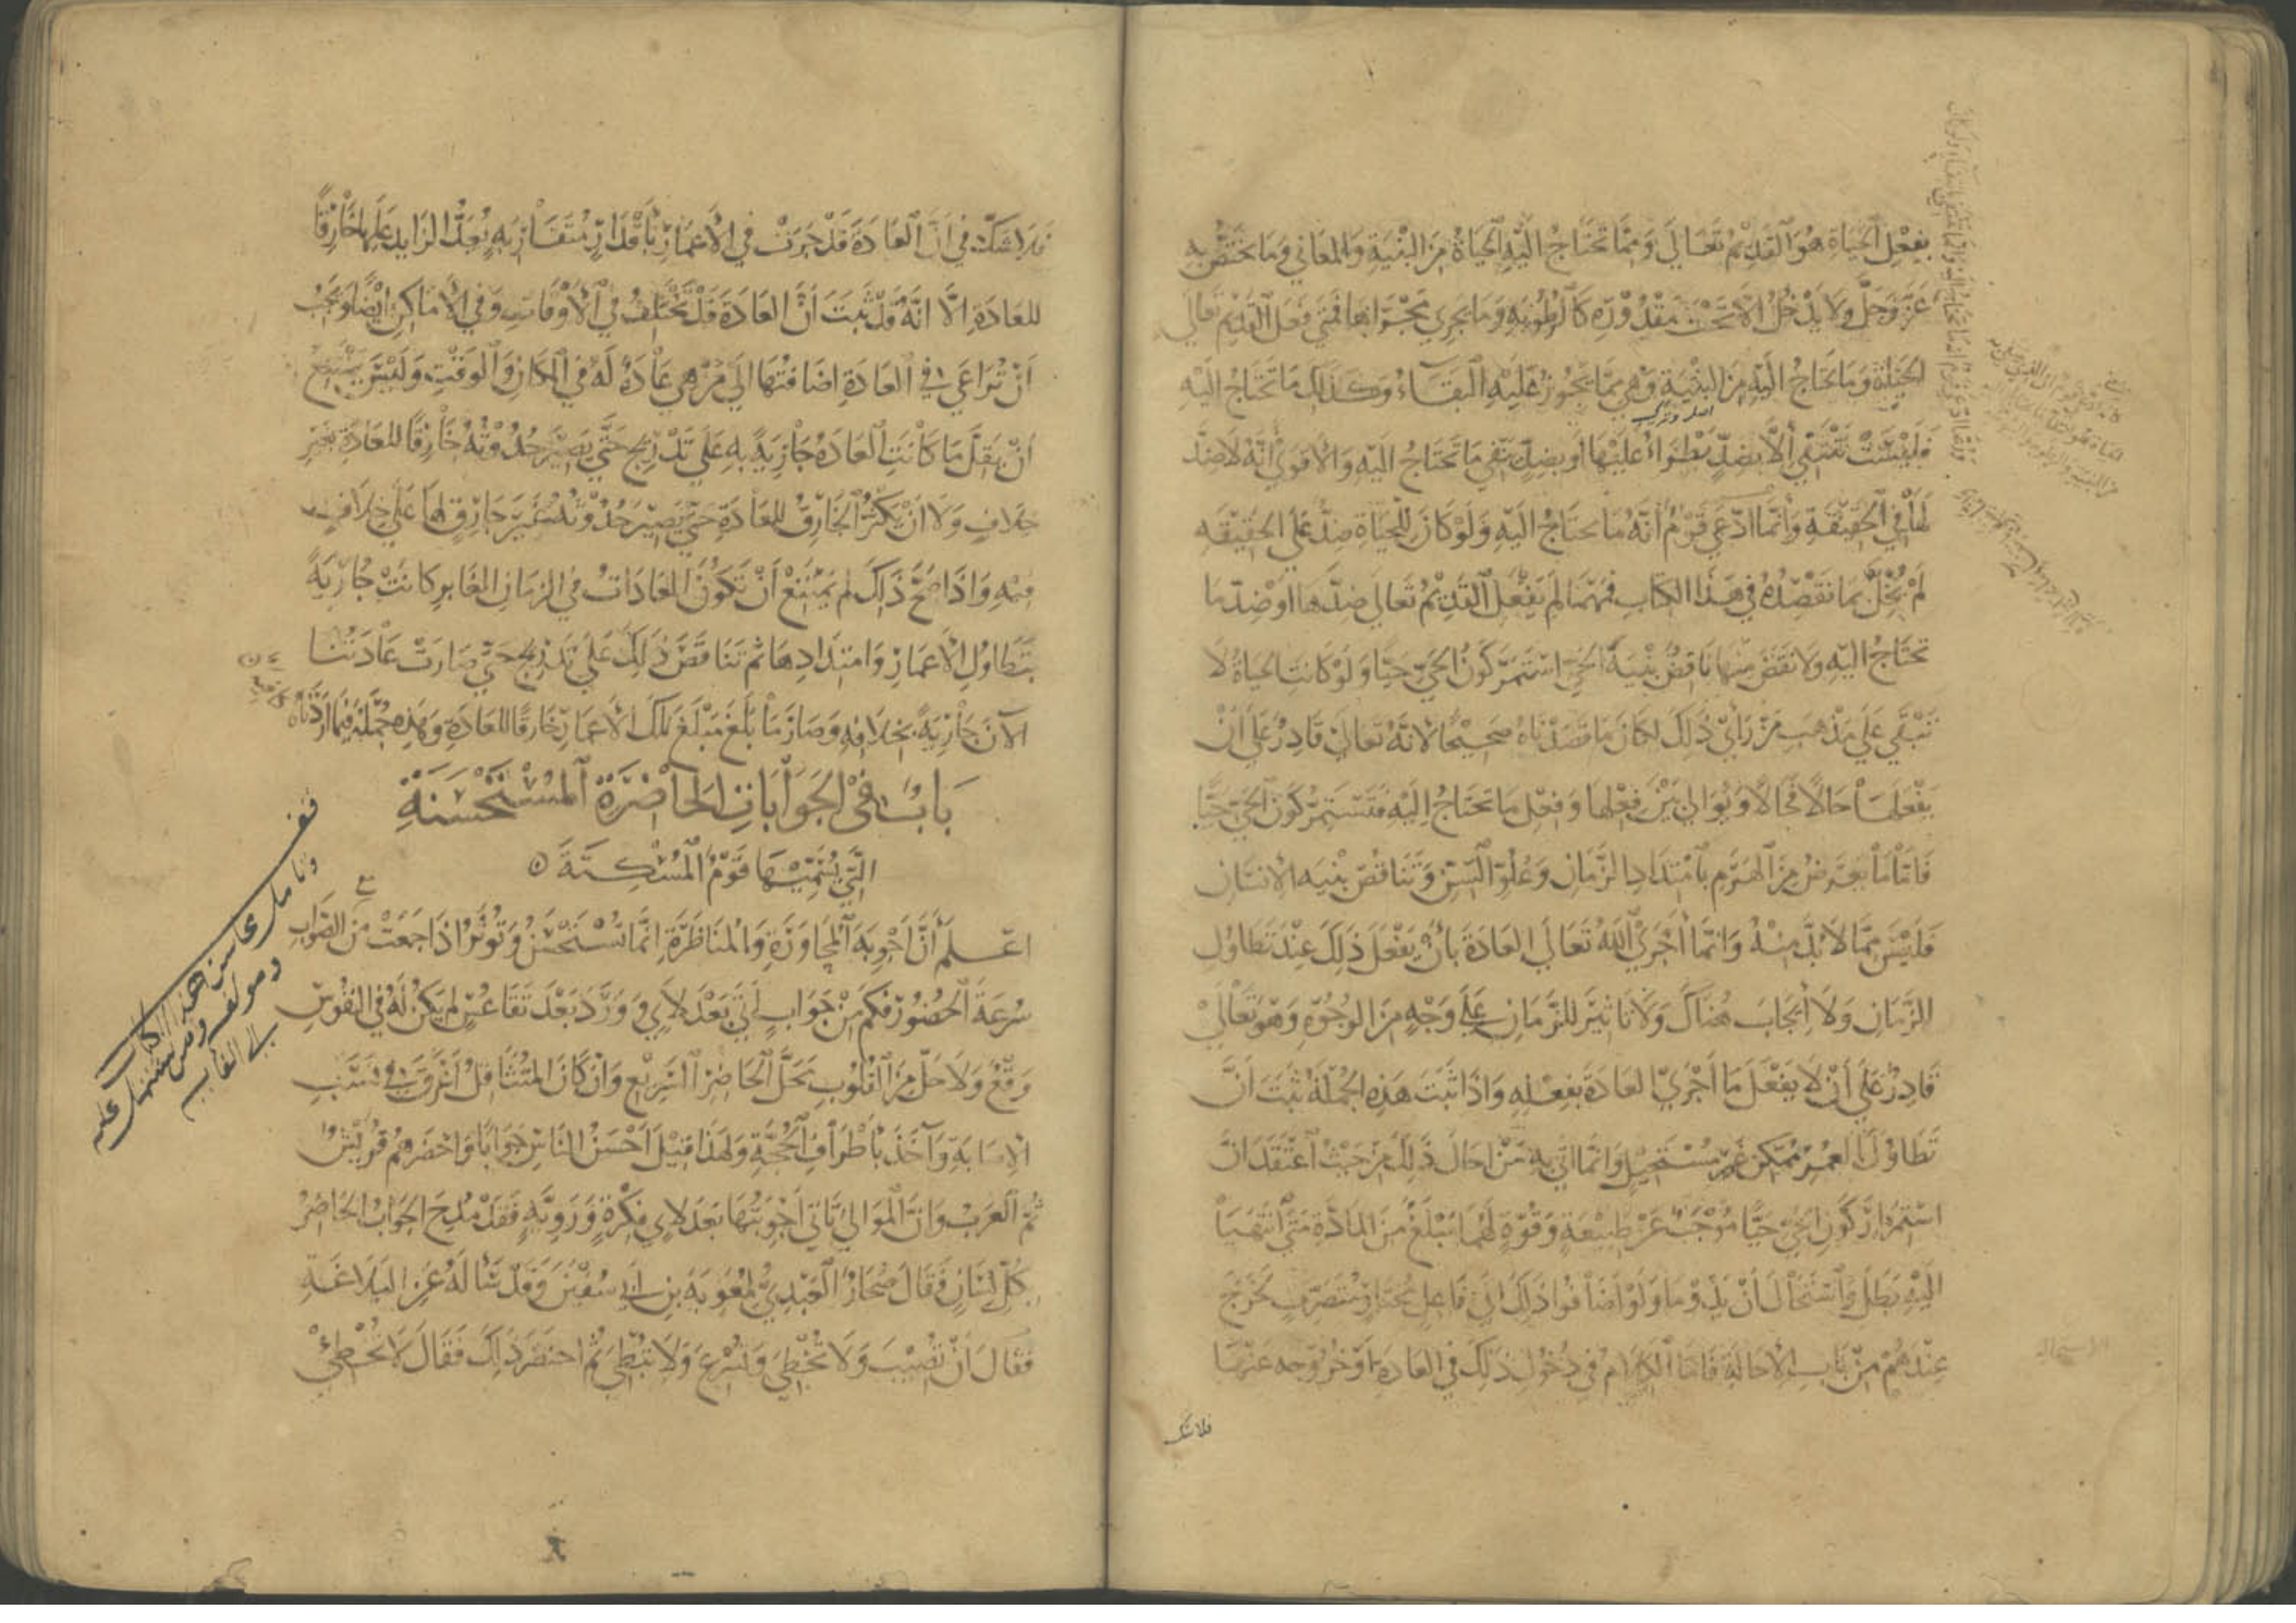 بفعل الحياة هو القديم تعالى ومما تحتاج اليه الحياة من البنية والمعاني وما يختص به
عز وجل ولا يدخل الا تحت مقدوره كالرطوبة وما يجري مجراها فمتى فعل القديم تعالى
الحياة وما تحتاج اليه من البنية وهي مما يجوز عليه البقاء وكذلك ما تحتاج اليه
فليست تنتفي الا بضد يطراء عليها او بضد ينفي ما تحتاج اليه والاقوى انه لا ضد
لها في الحقيقة وانما ادعى قوم انه ما تحتاج اليه ولو كان للحياة ضد على الحقيقه
لم يخل بما نقصده في هذا الكتاب فمهما لم يفعل القديم تعالى ضدها او ضد ما
تحتاج اليه ولا نقض منها ناقض بنية الحي استمر كون الحي حيا ولو كانت الحياة لا
تبقى على مذهب من رأى ذلك لكان ما قصدناه صحيحا لانه تعالى قادر على ان
يفعلها حالا فحالا ويوالي بين فعلها وفعل ما تحتاج اليه فتستمر كون الحي حيا
فاما ما يعرض من الهرم بامتداد الزمان وعلو السن وتناقض بنيه الانسان
فليس مما لا بد منه وانما اجرى الله تعالى العادة بان يفعل ذلك عند تطاول
الزمان ولا ايجاب هناك ولا تاثير للزمان على وجه من الوجوه وهو تعالى
قادر على ان لا يفعل ما اجرى العادة بفعله واذا ثبت هذه الجملة ثبت ان
تطاول العمر ممكن غير مستحيل وانما اتي به من احال ذلك من حيث اعتقد ان
استمرار كون الحي حيا موجب عن طبيعة وقوة لهما مبلغ من المادة متى انتهيا
اليه بطل واستحال ان يدوما ولو اضافوا ذلك الى فاعل مختار متصرف يخرج
عندهم من باب الاحالة فاما الكلام في دخول ذلك في العادة او خروجه عنها
الاستحالة
فلا شك
فلا شك في ان العادة قد جرت في الاعمار باقدار متقاربه يعد الزايد عليها خارقا
للعادة الا انه قد ثبت ان العادة قد تختلف في الاوقات وفي الاماكن ايضا ويجب
ان تراعى في العادة اضافتها الى من هي عادة له في المكان والوقت وليس يمتنع
ان يقل ما كانت العادة جارية به على تدريج حتى يصير حدوثه خارقا للعادة بغير
خلاف ولا ان يكثر الخارق للعادة حتى يصير حدوثه غير خارق لها على خلاف
فيه واذا صح ذلك لم يمتنع ان تكون العادات في الزمان الغابر كانت جارية
بتطاول الاعمار وامتدادها ثم تناقض ذلك على تدريج حتى صارت عادتنا
الان جارية بخلافه وصار ما بلغ مبلغ تلك الاعمار خارقا للعادة وهذه جملة فيما اردناه
باب في الجوابات الحاضرة المستحسنة
التي يسميها قوم المسكتة
اعلم ان اجوبة المحاورة والمناظرة انما تستحسن وتوثر اذا جمعت من الصواب
سرعة الحضور فكم من جواب اتى بعد لاي وورد بعد تقاعس لم يكن له في النفوس
وقع ولا حل من القلوب محل الحاضر السريع وان كان المتثاقل اعرق في نسب
الاصابة وآخذ باطراف الحجة ولهذا قيل احسن الناس جوابا واحضرهم قريش
ثم العرب وان الموالي تاتي اجوبتها بعد لاي فكرة وروية فقد مدح الجواب الحاضر
كل لسان فقال صحار العبدي لمعوية بن ابي سفين وقد ساله عن البلاغة
فقال ان تصيب ولا تخطي وتسرع ولا تبطي ثم اختصر ذلك فقال لا تخطئ